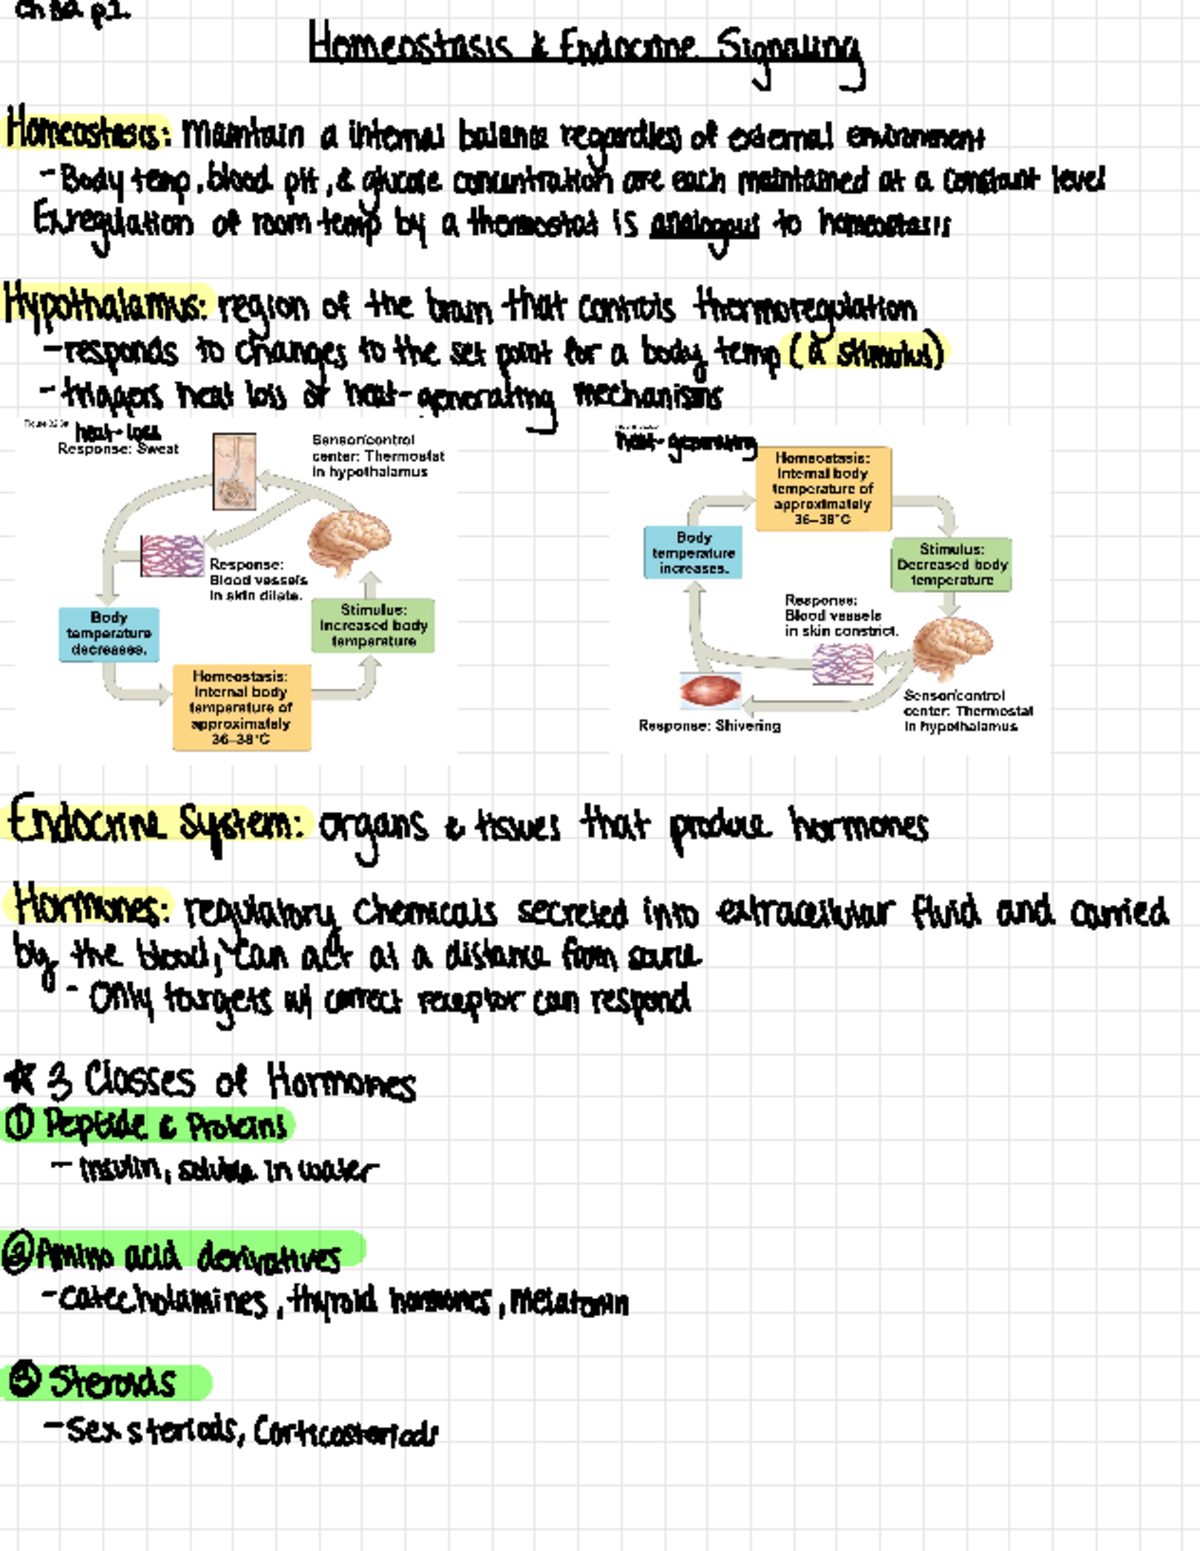 Ch 32 p1.
Homeostasis & Endocrine Signaling
Homeostasis: maintain a internal balance regardles of external environment
- Body temp, blood pH, & glucose concentration are each maintained at a constant level
Ex: regulation of room temp by a thermostat is analogous to homeostasis
Hypothalamus: region of the brain that controls thermoregulation
- responds to changes to the set point for a body temp (a stimulus)
- triggers heat loss or heat-generating mechanisms
heat-loss
Response: Sweat
Sensor/control
center: Thermostat
in hypothalamus
Response:
Blood vessels
in skin dilate.
Body
temperature
decreases.
Stimulus:
Increased body
temperature
Homeostasis:
Internal body
temperature of
approximately
36–38°C
heat-generating
Homeostasis:
Internal body
temperature of
approximately
36–38°C
Body
temperature
increases.
Stimulus:
Decreased body
temperature
Response:
Blood vessels
in skin constrict.
Response: Shivering
Sensor/control
center: Thermostat
in hypothalamus
Endocrine System: organs & tissues that produce hormones
Hormones: regulatory chemicals secreted into extracellular fluid and carried
by the blood, can act at a distance from source
- Only targets w/ correct receptor can respond
★ 3 Classes of Hormones
① Peptide & Proteins
- insulin, soluble in water
② Amino acid derivatives
- catecholamines, thyroid hormones, melatonin
③ Steroids
- Sex steriods, Corticosteriods